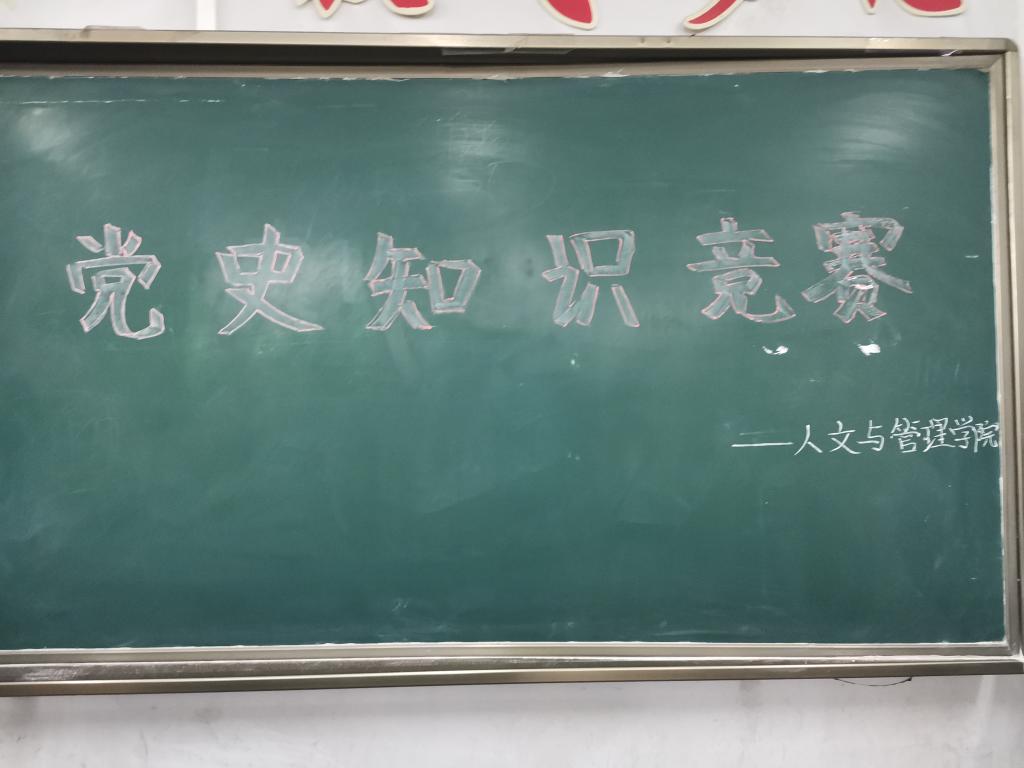 党史知识竞赛
——人文与管理学院